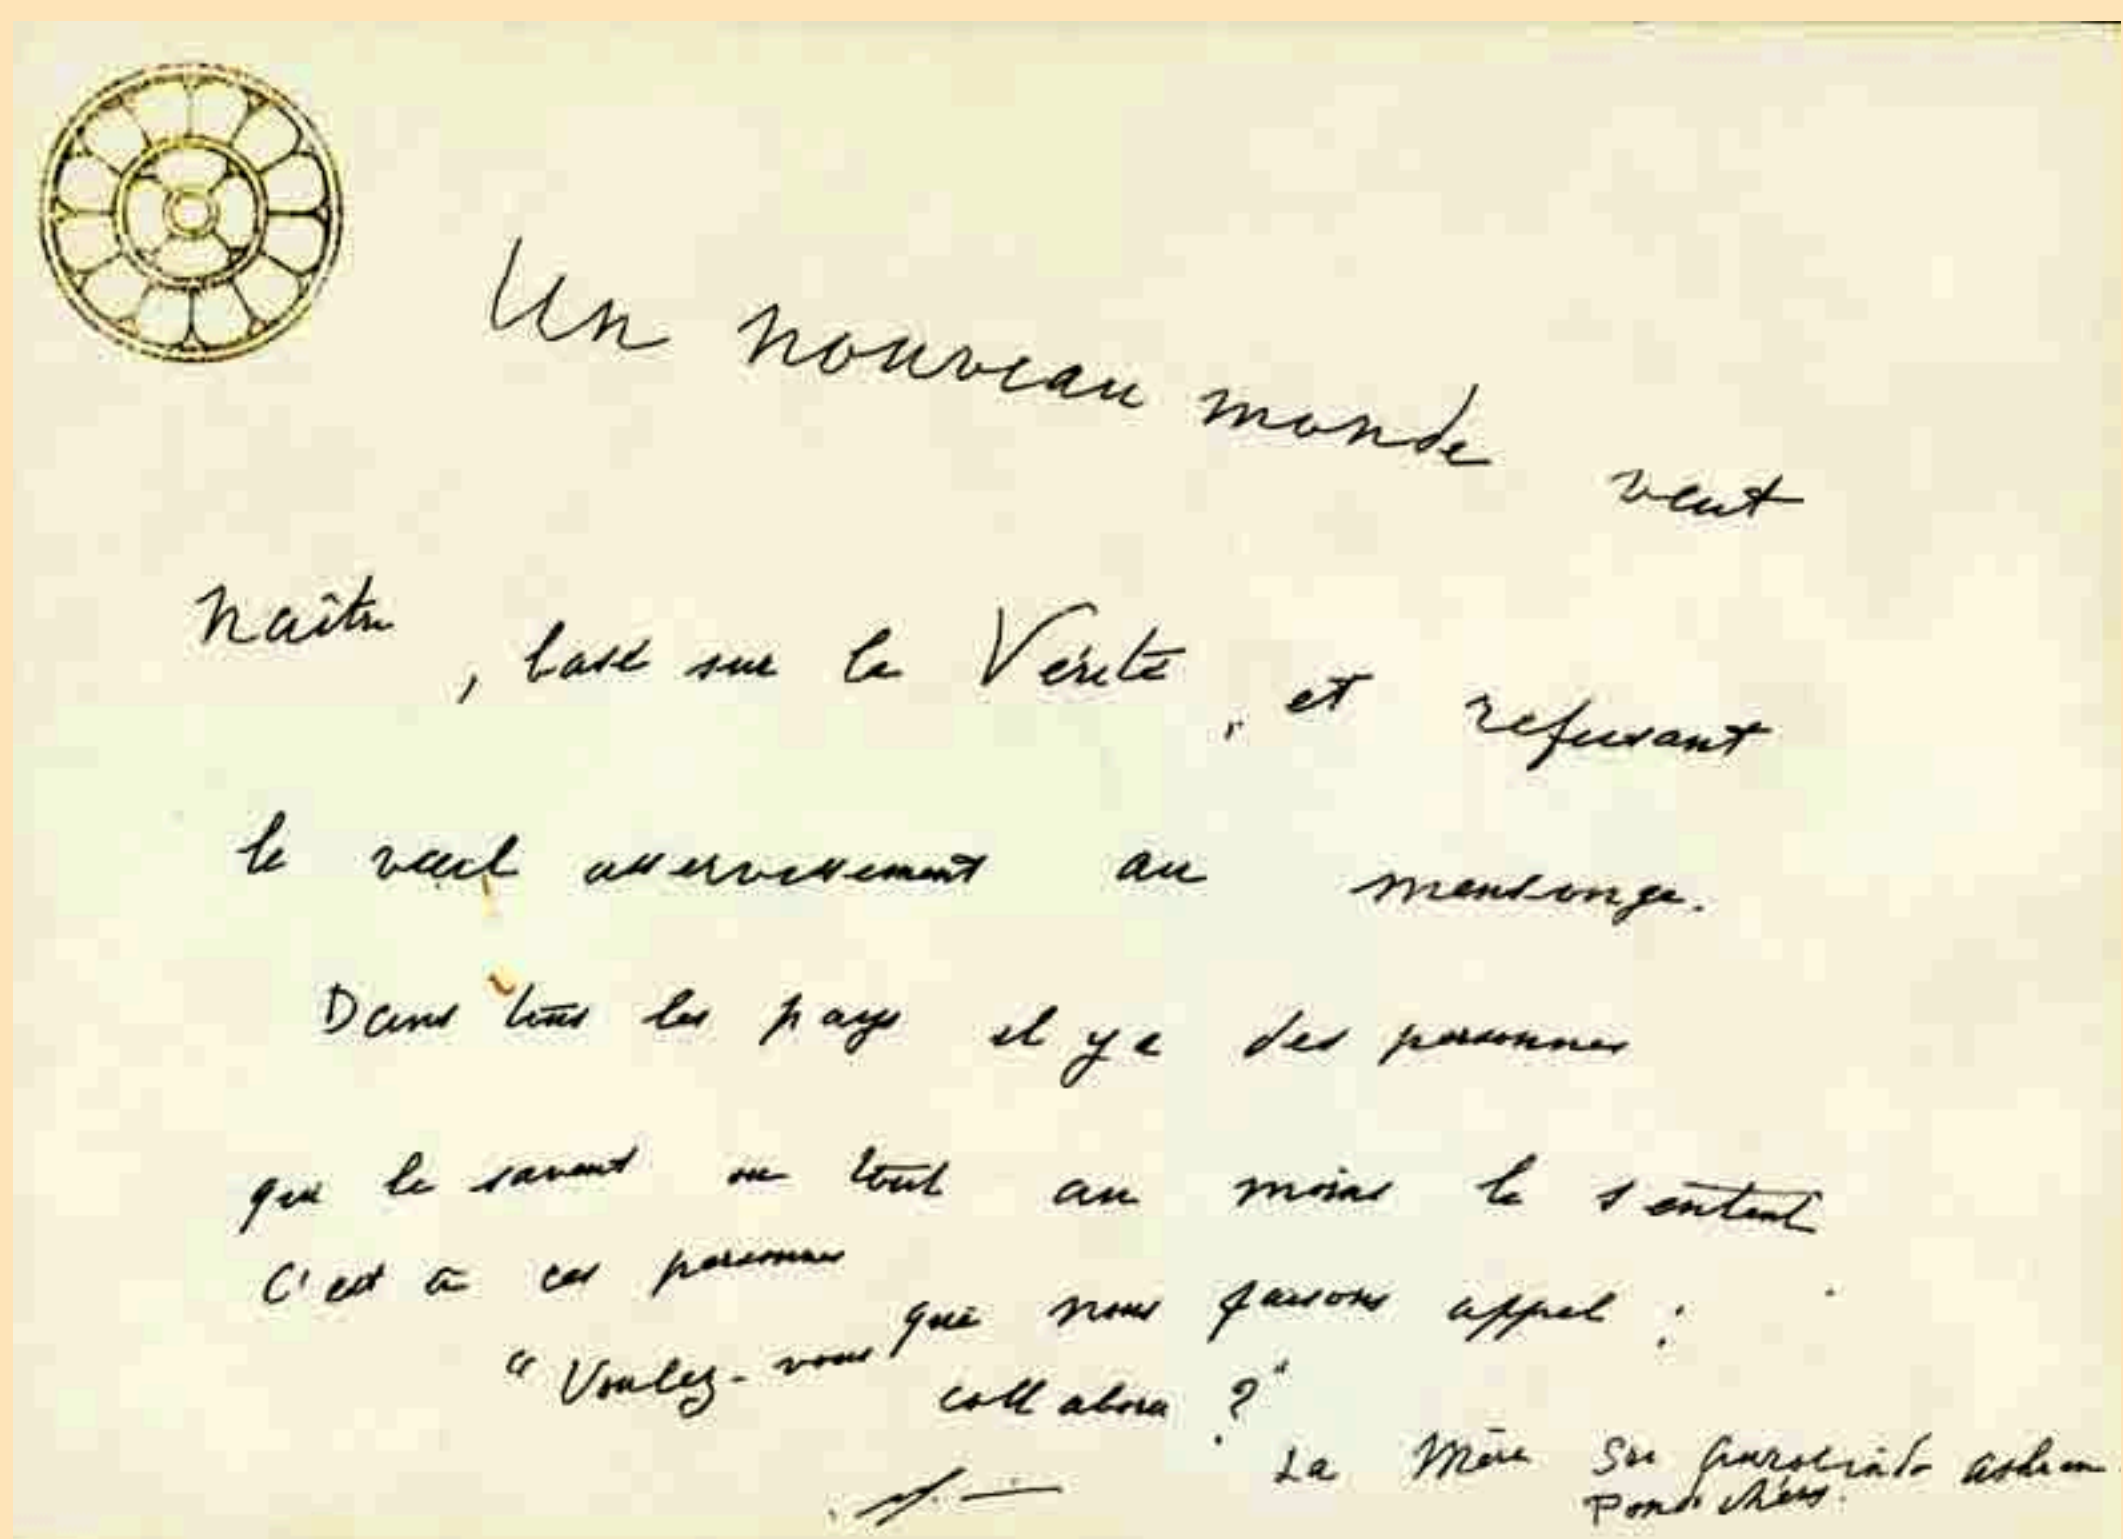 Un nouveau monde veut
naître, basé sur la Vérité, et refusant
le vieil asservissement au mensonge.
Dans tous les pays il y a des personnes
qui le savent ou tout au moins le sentent.
C'est à ces personnes que nous faisons appel :
"Voulez-vous collaborer ?"
La Mère Sri Aurobindo ashram
Pondichéry.